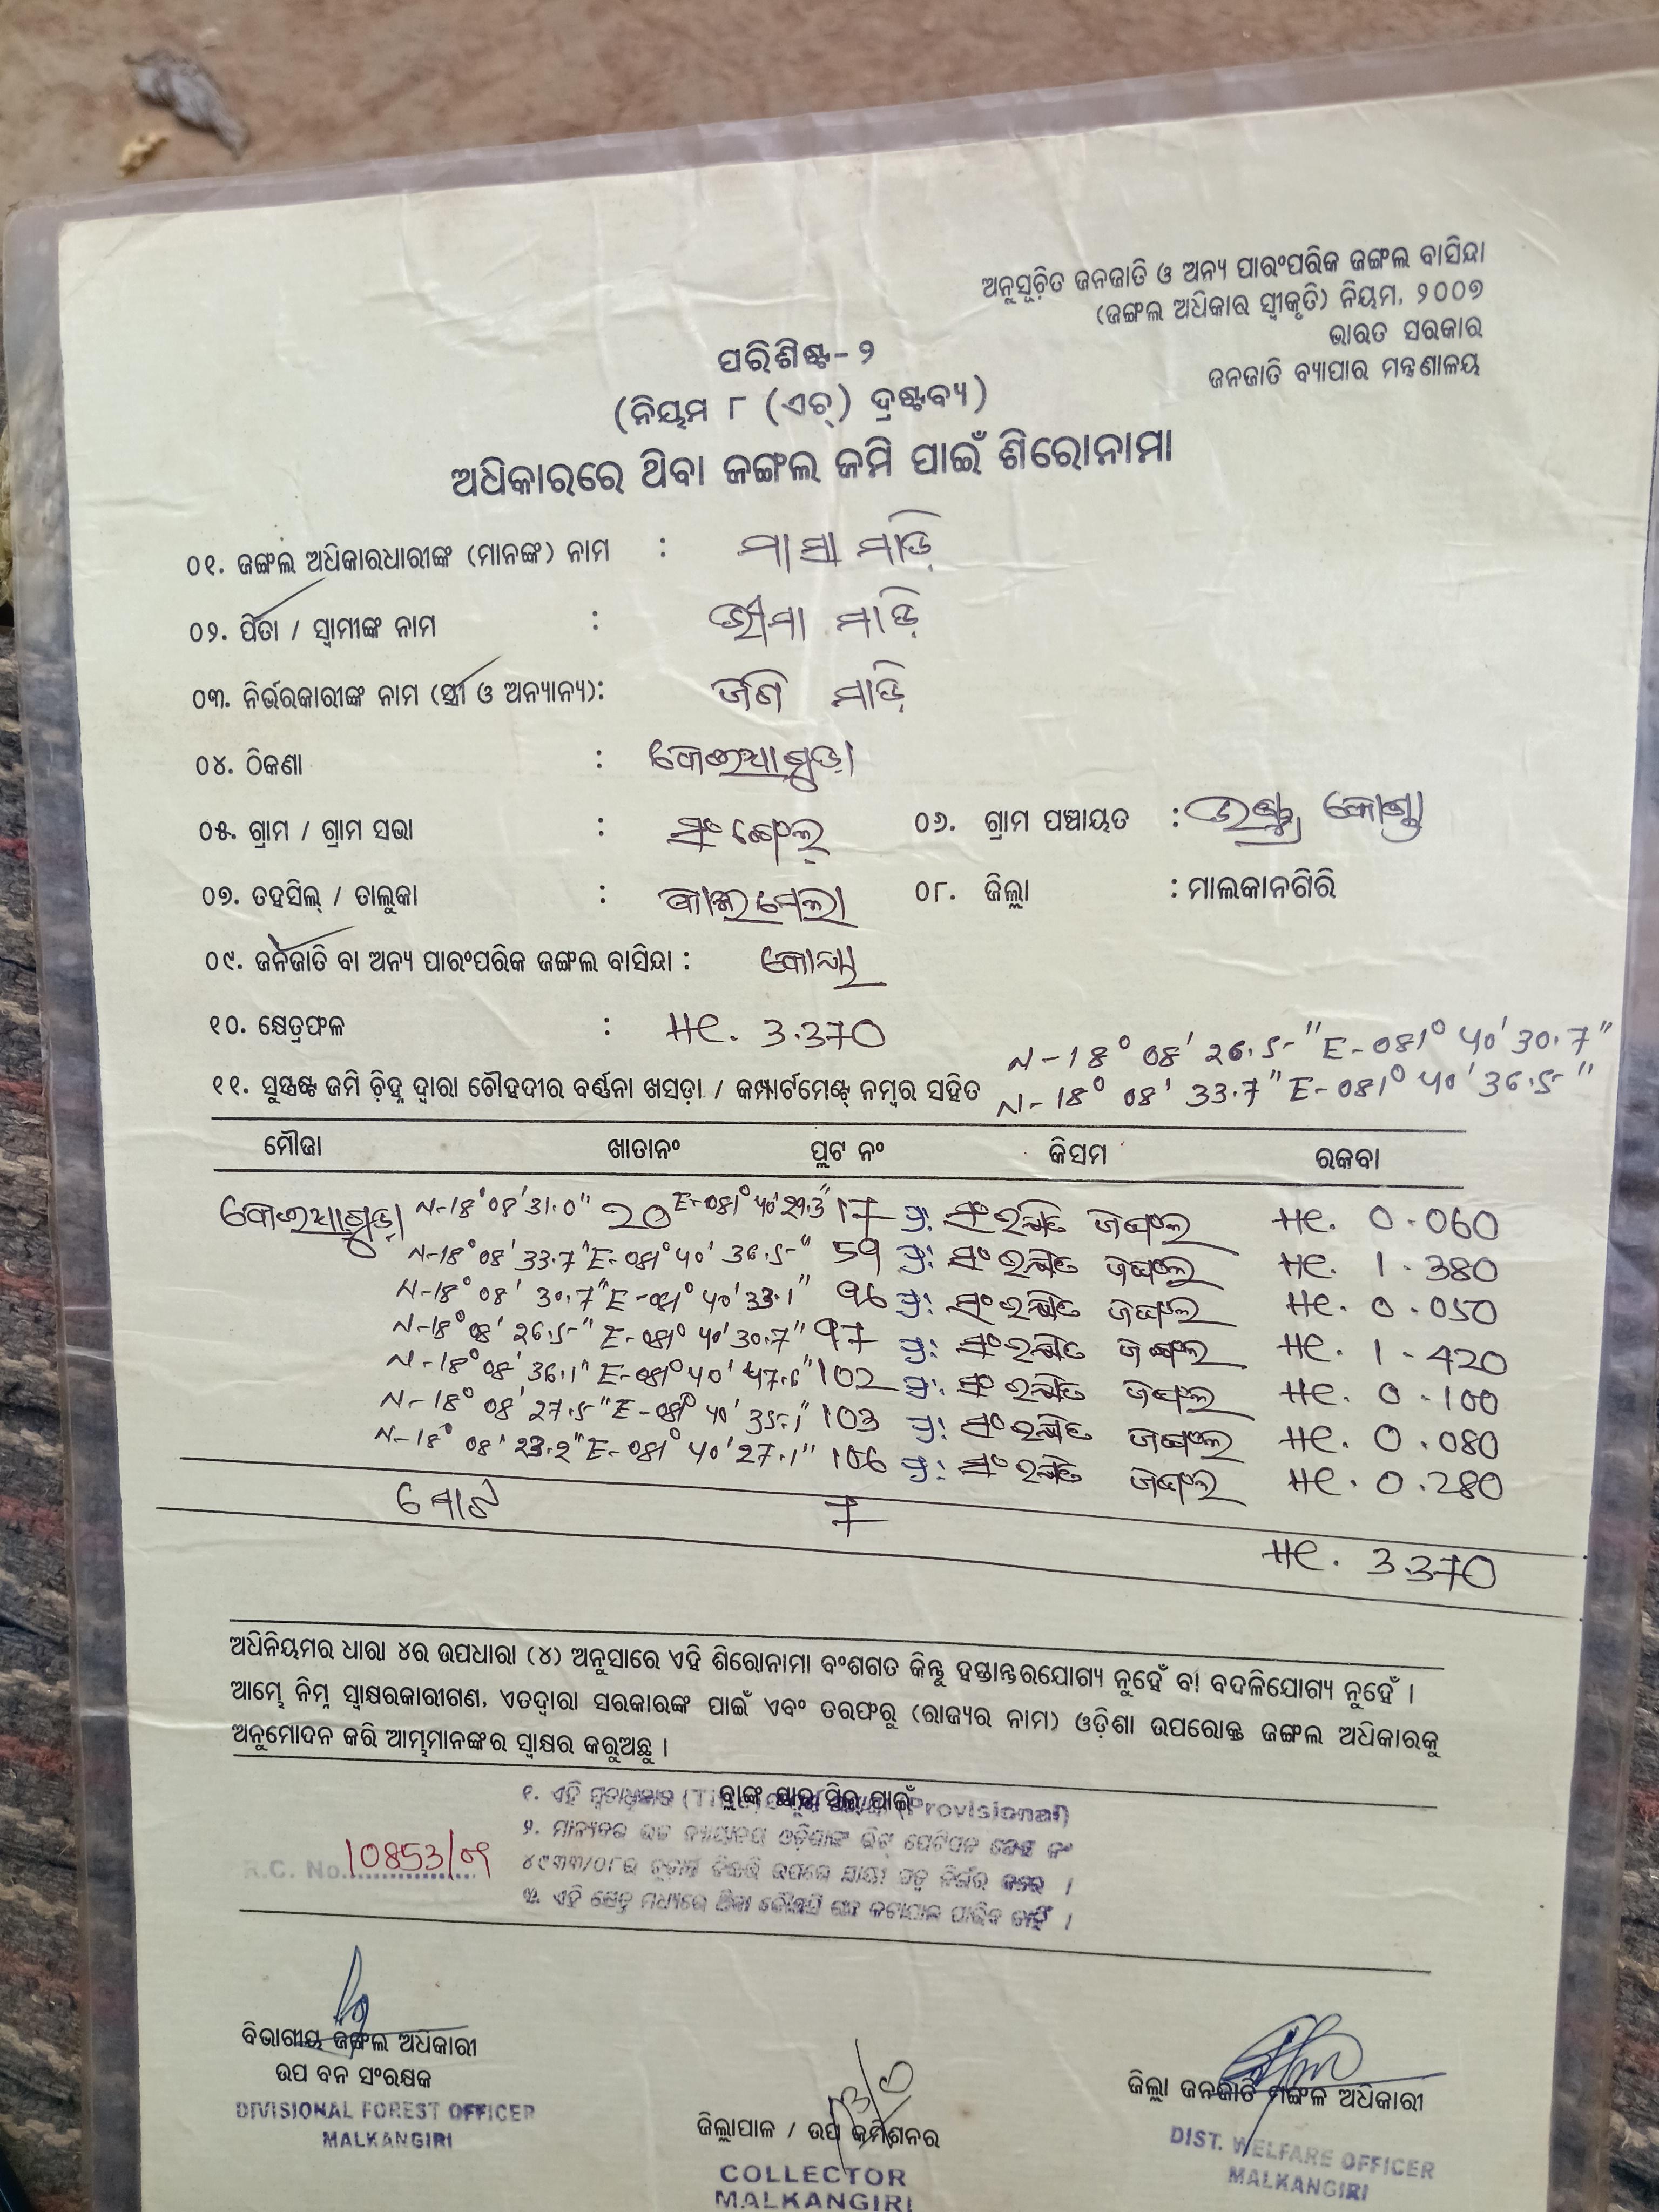 ଅନୁସୂଚିତ ଜନଜାତି ଓ ଅନ୍ୟ ପାରଂପରିକ ଜଙ୍ଗଲ ବାସିନ୍ଦା
(ଜଙ୍ଗଲ ଅଧିକାର ସ୍ୱୀକୃତି) ନିୟମ, ୨୦୦୭
ଭାରତ ସରକାର
ଜନଜାତି ବ୍ୟାପାର ମନ୍ତ୍ରଣାଳୟ
ପରିଶିଷ୍ଟ-୨
(ନିୟମ ୮ (ଏଚ୍) ଦ୍ରଷ୍ଟବ୍ୟ)
ଅଧିକାରରେ ଥିବା ଜଙ୍ଗଲ ଜମି ପାଇଁ ଶିରୋନାମା
୦୧. ଜଙ୍ଗଲ ଅଧିକାରଧାରୀଙ୍କ (ମାନଙ୍କ) ନାମ : ମାସା ମାଡ଼ି
୦୨. ପିତା / ସ୍ୱାମୀଙ୍କ ନାମ : ଭୀମା ମାଡ଼ି
୦୩. ନିର୍ଭରକାରୀଙ୍କ ନାମ (ସ୍ତ୍ରୀ ଓ ଅନ୍ୟାନ୍ୟ): ଜଣି ମାଡ଼ି
୦୪. ଠିକଣା : କେଇଆଗୁଡ଼ା
୦୫. ଗ୍ରାମ / ଗ୍ରାମ ସଭା : ସଂଗେଲ୍ ୦୬. ଗ୍ରାମ ପଞ୍ଚାୟତ :
୦୭. ତହସିଲ୍ / ତାଲୁକା : କାଲିମେଲା ୦୮. ଜିଲ୍ଲା : ମାଲକାନଗିରି
୦୯. ଜନଜାତି ବା ଅନ୍ୟ ପାରଂପରିକ ଜଙ୍ଗଲ ବାସିନ୍ଦା : କୋୟା
୧୦. କ୍ଷେତ୍ରଫଳ : He. 3.370
N-18° 08' 26.5" E-081° 40' 30.7"
୧୧. ସୁସ୍ପଷ୍ଟ ଜମି ଚିହ୍ନ ଦ୍ୱାରା ଚୌହଦୀର ବର୍ଣ୍ଣନା ଖସଡ଼ା / କମ୍ପାର୍ଟମେଣ୍ଟ୍ ନମ୍ବର ସହିତ N-18° 08' 33.7" E-081° 40' 36.5"
ମୌଜା ଖାତାନଂ ପ୍ଲଟ ନଂ କିସମ ରକବା
କେଇଆଗୁଡ଼ା N-18° 08' 31.0" 20 E-081° 40' 29.3" 17 ପ୍ର: ସଂରକ୍ଷିତ ଜଙ୍ଗଲ He. 0.060
N-18° 08' 33.7" E-081° 40' 36.5" 59 ପ୍ର: ସଂରକ୍ଷିତ ଜଙ୍ଗଲ He. 1.380
N-18° 08' 30.7" E-081° 40' 33.1" 96 ପ୍ର: ସଂରକ୍ଷିତ ଜଙ୍ଗଲ He. 0.050
N-18° 08' 26.5" E-081° 40' 30.7" 97 ପ୍ର: ସଂରକ୍ଷିତ ଜଙ୍ଗଲ He. 1.420
N-18° 08' 36.1" E-081° 40' 47.6" 102 ପ୍ର: ସଂରକ୍ଷିତ ଜଙ୍ଗଲ He. 0.100
N-18° 08' 27.5" E-081° 40' 35.1" 103 ପ୍ର: ସଂରକ୍ଷିତ ଜଙ୍ଗଲ He. 0.080
N-18° 08' 23.2" E-081° 40' 27.1" 106 ପ୍ର: ସଂରକ୍ଷିତ ଜଙ୍ଗଲ He. 0.280
ମୋଟ 7 He. 3.370
ଅଧିନିୟମର ଧାରା ୪ର ଉପଧାରା (୪) ଅନୁସାରେ ଏହି ଶିରୋନାମା ବଂଶଗତ କିନ୍ତୁ ହସ୍ତାନ୍ତରଯୋଗ୍ୟ ନୁହେଁ ବା ବଦଳିଯୋଗ୍ୟ ନୁହେଁ ।
ଆମ୍ଭେ ନିମ୍ନ ସ୍ୱାକ୍ଷରକାରୀଗଣ, ଏତଦ୍ୱାରା ସରକାରଙ୍କ ପାଇଁ ଏବଂ ତରଫରୁ (ରାଜ୍ୟର ନାମ) ଓଡ଼ିଶା ଉପରୋକ୍ତ ଜଙ୍ଗଲ ଅଧିକାରକୁ
ଅନୁମୋଦନ କରି ଆମ୍ଭମାନଙ୍କର ସ୍ୱାକ୍ଷର କରୁଅଛୁ ।
୧. ଏହି (Provisional)
୨. ମାନ୍ୟବର ଉଚ୍ଚ ନ୍ୟାୟାଳୟ ଓଡ଼ିଶାଙ୍କ ରିଟ୍ ପେଟିସନ କେସ ନଂ
R.C. No. 10853/09 ୪୯୩୩/୦୮ର ଚୂଡ଼ାନ୍ତ ଉପରେ ନିର୍ଭର କରେ ।
୩. ଏହି କ୍ଷେତ୍ର ମଧ୍ୟରେ ଥିବା କୌଣସି ଗଛ କଟାଯାଇ ପାରିବ ନାହିଁ ।
ବିଭାଗୀୟ ଜଙ୍ଗଲ ଅଧିକାରୀ
ଉପ ବନ ସଂରକ୍ଷକ
DIVISIONAL FOREST OFFICER
MALKANGIRI
ଜିଲ୍ଲାପାଳ / ଉପ କମିଶନର
COLLECTOR
MALKANGIRI
ଜିଲ୍ଲା ଜନଜାତି ମଙ୍ଗଳ ଅଧିକାରୀ
DIST. WELFARE OFFICER
MALKANGIRI